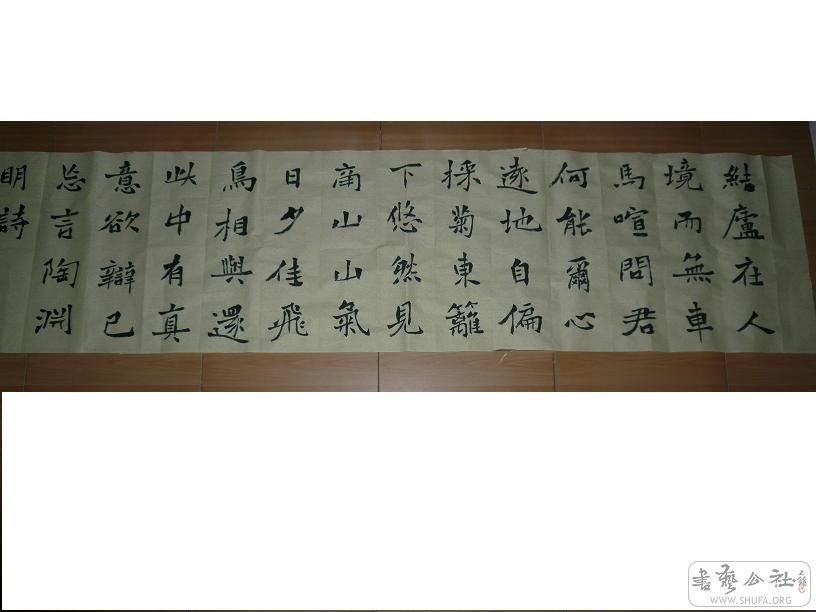 結廬在人
境而無車
馬喧問君
何能爾心
遠地自偏
採菊東籬
下悠然見
南山山氣
日夕佳飛
鳥相與還
此中有真
意欲辯已
忘言陶淵
明詩
書藝公社
WWW.SHUFA.ORG